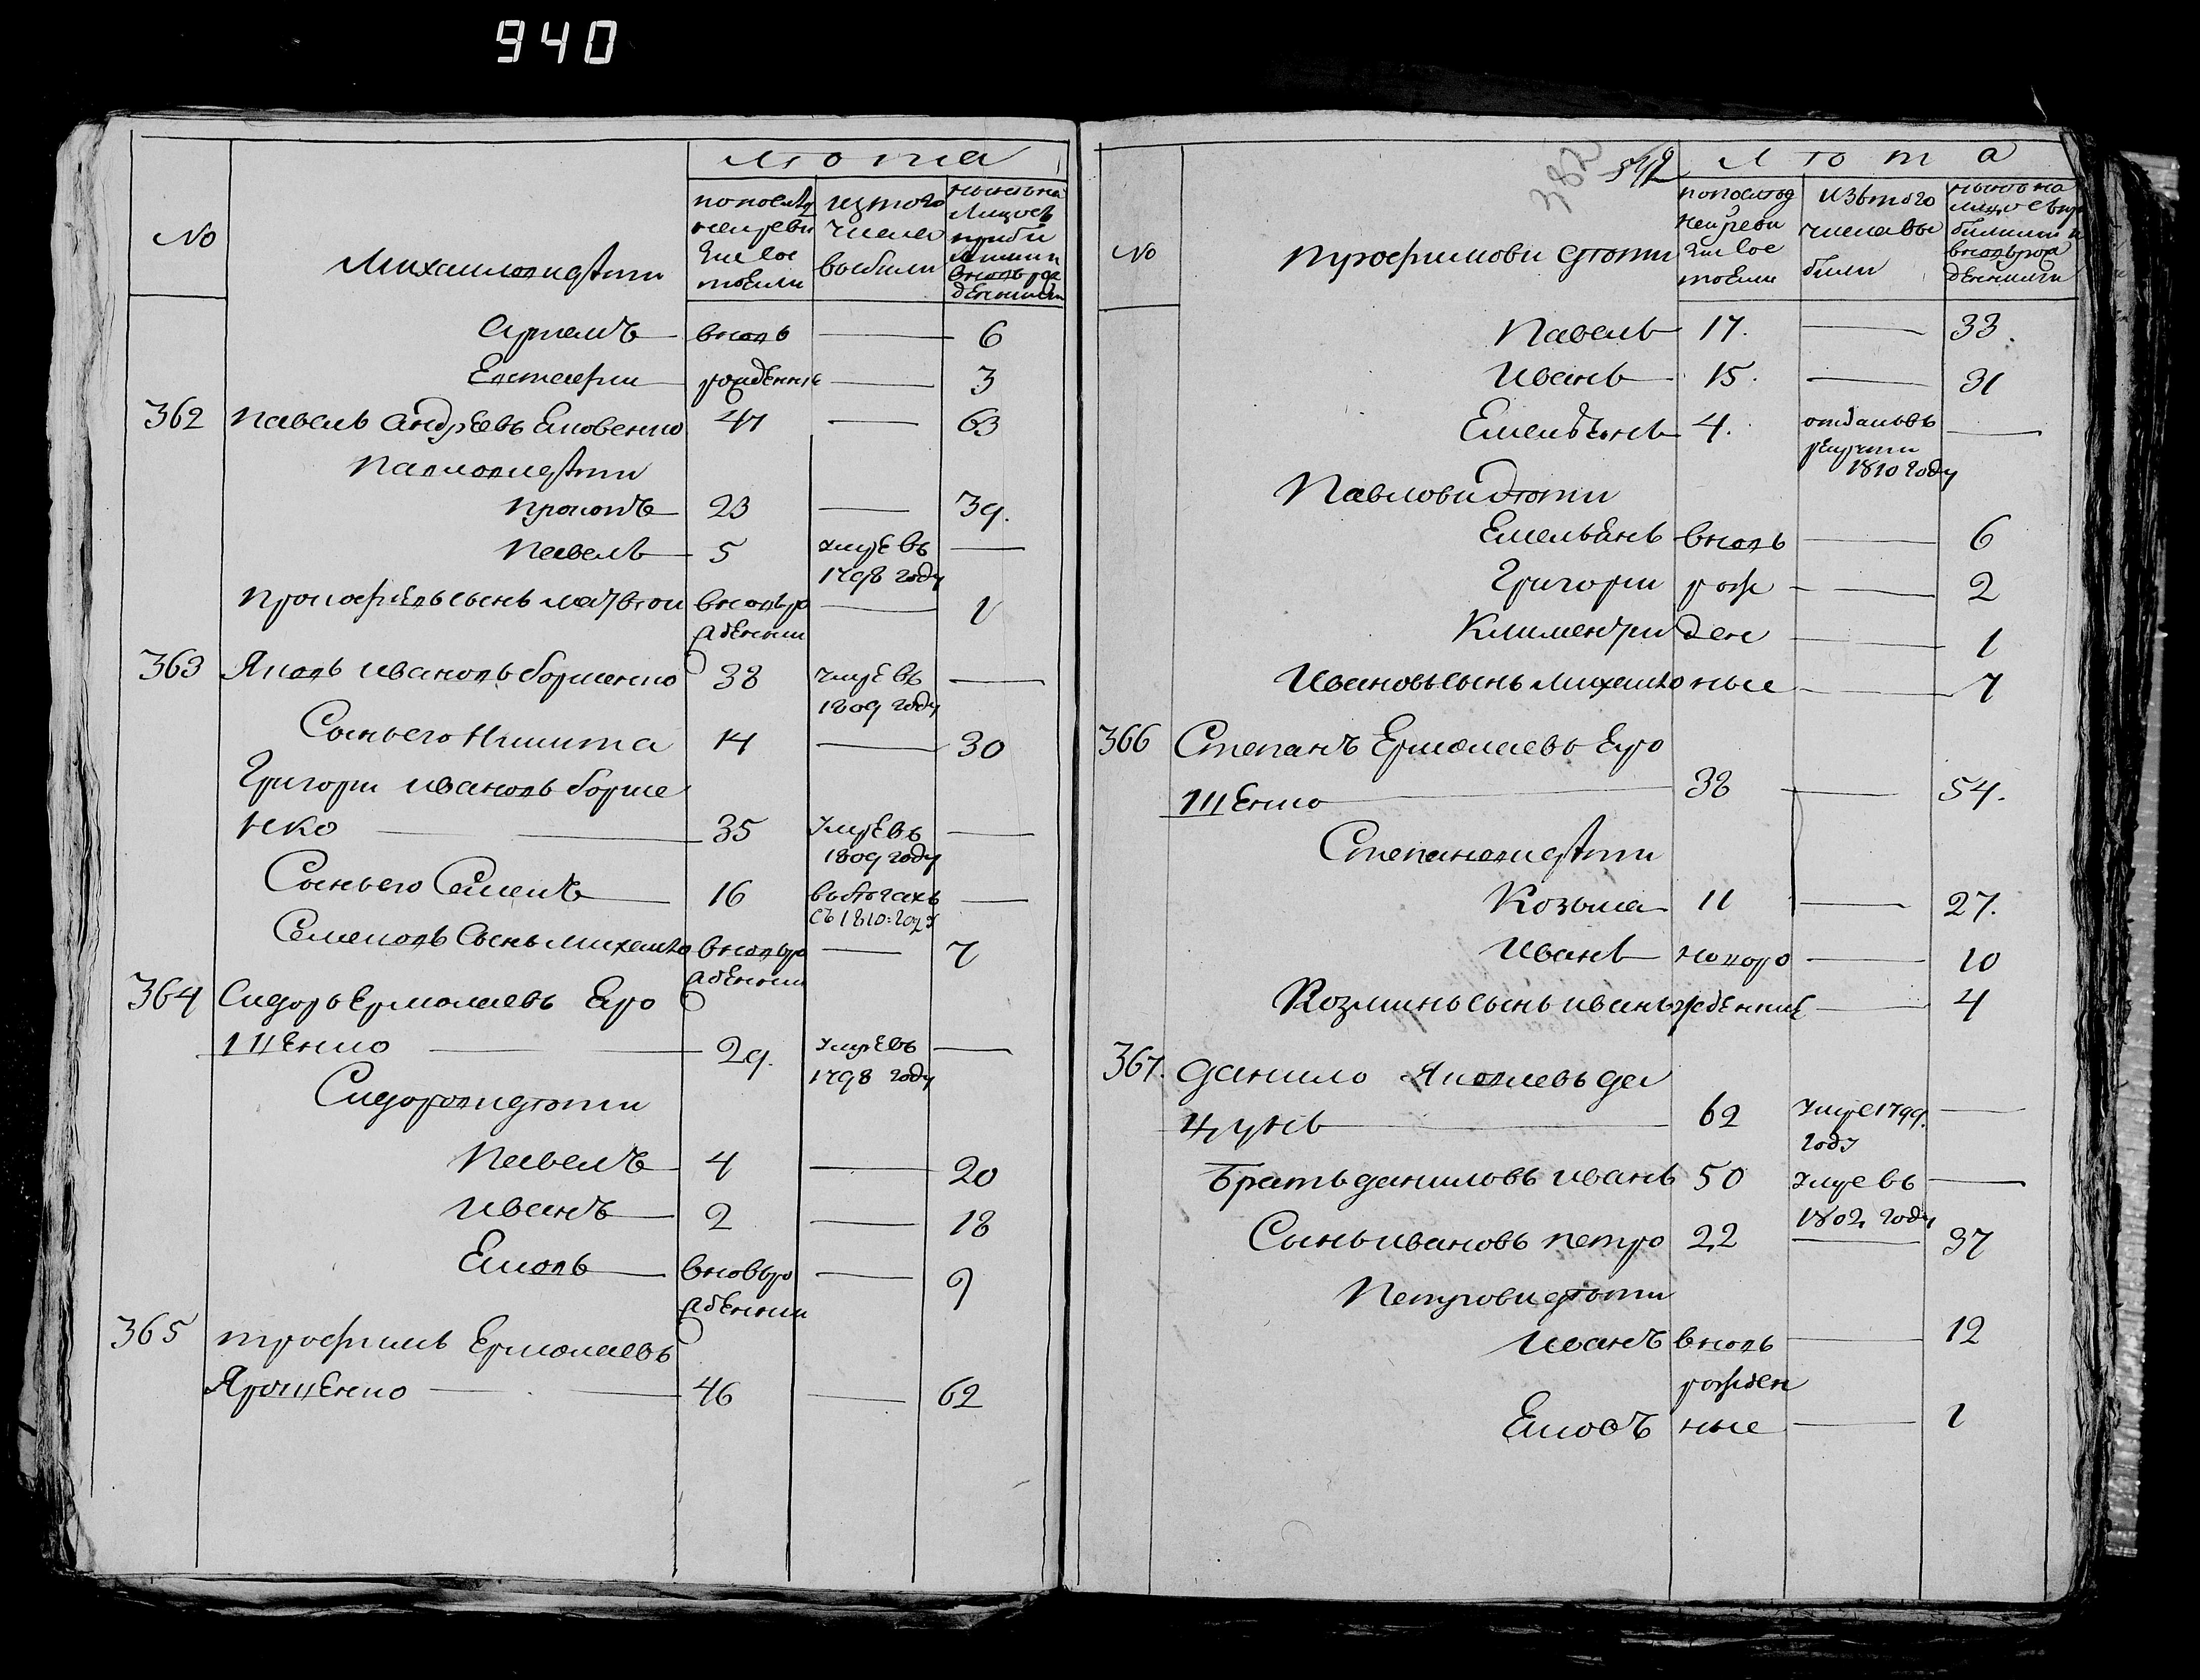 940
лѣта
No
Михаиловидѣти
попослед
неиреви
зие сос
тоели
изтого
числа
выбыли
ныне на
лицо съ
приби
лыми и
вновь ро
жденними
Артемъ вновь — 6
Евстафии рожденние — 3
362 Павелъ Андреевъ Яковенко 47 — 63
Павловидѣти
Прокопъ 23 — 39.
Павелъ 5 умре въ —
1798 году
Прокофьевъ сынъ Матвеи вновьро — 1
жденнии
363 Яковъ Ивановъ Борисенко 38 умре въ —
1809 году
Сынъ его Никита 14 — 30
Григори Ивановъ Борисе
нко — 35 умре въ —
1809 году
Сынъ его Семенъ 16 въ бегахъ —
съ 1810: году
Семеновъ Сынъ Михаило вновьро — 7
жденнии
364 Сидоръ Ермолаевъ Еро
щенко — 29. умре въ —
1798 году
Сидоровидѣти
Павелъ 4 — 20
Иванъ 2 — 18
Яковъ вновьро — 9
жденнии
365 Трофимъ Ермолаевъ
Ярощенко — 46 — 62
382
542
лѣта
No
Трофимови дѣти
попослед
неиреви
зие сос
тоели
изътого
числа вы
были
нынѣ на
лицо съ при
билими и
вновьрож
денними
Павелъ 17. — 33.
Иванъ 15. — 31
Емельянъ 4. отданъ въ —
рекрути
1810 году
Павлови дѣти
Емельянъ вновь — 6
Григори рож — 2
Климентри ден — 1
Ивановъ сынъ Михаило ные — 7
366 Степанъ Ермолаевъ Еро
щенко — 38 — 54.
Степановидѣти
Козьма 11 — 27.
Иванъ новоро — 10
Козминъ сынъ Иванъ жденние — 4
367. Данило Яковлевъ Да
цунъ — 62 умре 1799. —
году
Братъ даниловъ Иванъ 50 умре въ —
1802 году
Сынъ Ивановъ Петро 22 — 37
Петровидѣти
Иванъ вновь — 12
рожден
Яковъ ные — 1